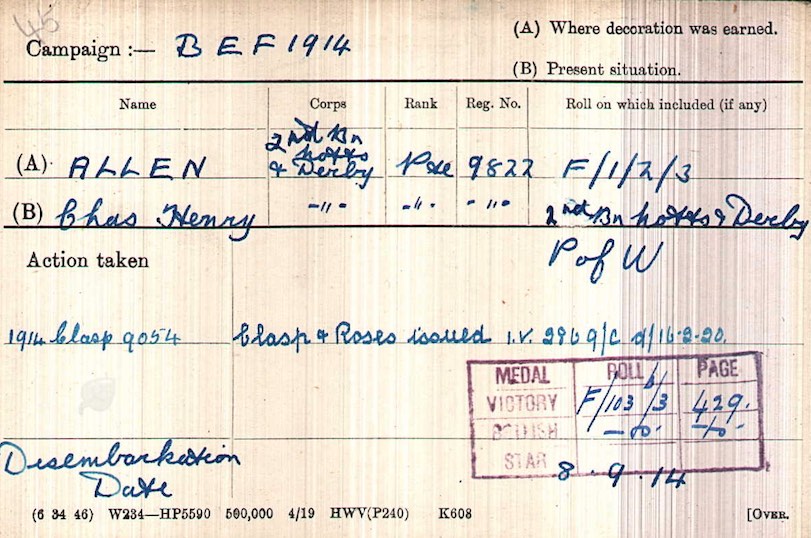 45
(A) Where decoration was earned.
Campaign :— B E F 1914
(B) Present situation.
Name Corps Rank Reg. No. Roll on which included (if any)
2nd Bn
Notts
(A) ALLEN & Derby Pte 9822 F/1/2/3
(B) Chas Henry -"- -"- -"- 2nd Bn Notts & Derby
Action taken P of W
1914 Clasp 9054 Clasp & Roses issued I.V. 2969/C d/16-2-20.
MEDAL ROLL PAGE
VICTORY F/103/3 429.
BRITISH -do- -do-
STAR
Disembarkation 8.9.14
Date
(6 34 46) W234—HP5590 500,000 4/19 HWV(P240) K608 [OVER.